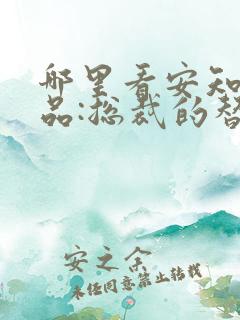 哪里看安知
品:总裁的替
安之余
未经同意禁止转载